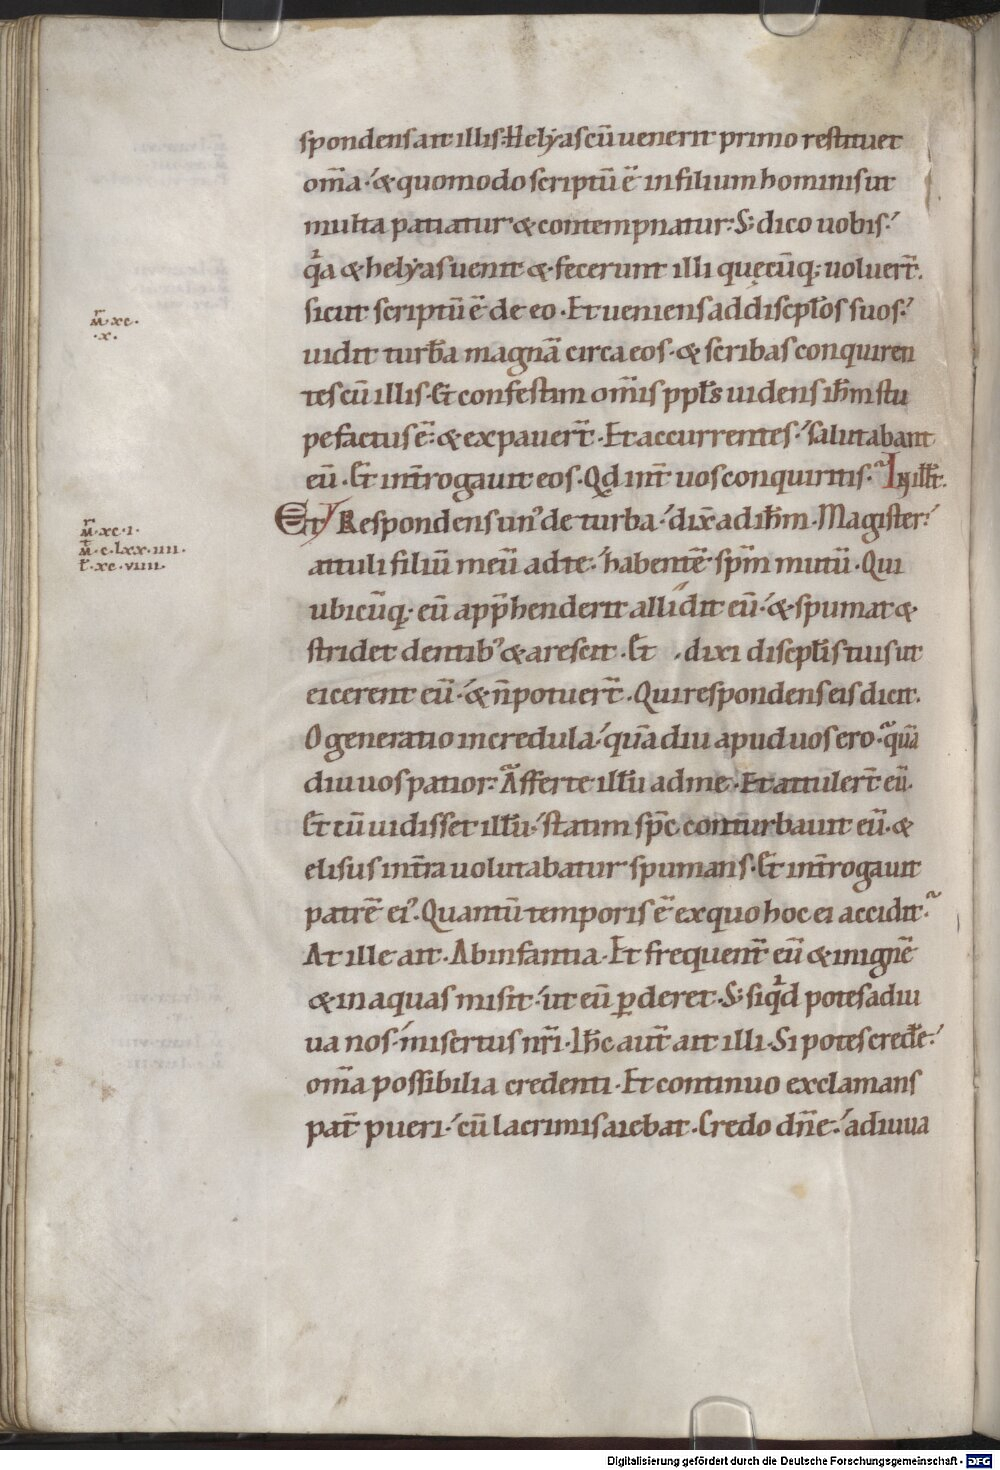 spondens ait illis. Helyas cū uenerit primo restituet
om̄a. & quomodo scriptū ē in filium hominis ut
multa patiatur & contempnatur. S; dico uobis.
q̓a & helyas uenit & fecerunt illi quęcūq; uoluer̄t.
sicut scriptū ē de eo. Et ueniens ad discipl̄os suos.
uidit turbā magnā circa eos. & scribas conquiren
tes cū illis. Et confestim om̄is ppl̄s uidens ih̄m stu
pefactus ē. & expauer̄t. Et accurrentes. salutabant
eū. Et int̄rogauit eos. Qd int̄ uos conquiritis. In ill̄t.
Et Respondens un᾽ de turba. dix̄ ad ih̄m. Magister.
attuli filiū meū ad te. habentē sp̄m mutū. Qui
ubicūq; eū app̄henderit allidit eū. & spumat &
stridet dentib᾽ & arescit. Et . dixi discipl̄is tuis ut
eicerent eū. & n̄ potuer̄t. Qui respondens eis dicit.
O generatio incredula. quādiu apud uos ero. quā
diu uos patior. Afferte ill̄u ad me. Et attuler̄t eū.
Et cū uidisset ill̄u. statim sp̄c conturbauit eū. &
elisus int̄ra uolutabatur spumans. Et int̄rogauit
patrē ei᾽. Quantū temporis ē ex quo hoc ei accidit.
At ille ait. Ab infantia. Et frequent̄ eū & in ignē
& in aquas misit. ut eū p̱deret. S; siq̓d potes adiu
ua nos. misertus nr̄i. Ih̄c aut̄ ait illi. Si potes crede̅.
om̄a possibilia credenti. Et continuo exclamans
pat̄ pueri. cū lacrimis aiebat. Credo dn̄e. adiuua
m̄r. xc.
.x.
m̄r. xc.i.
m̄t. c.lxx.iiii.
l̄. xc.viiii.
Digitalisierung gefördert durch die Deutsche Forschungsgemeinschaft - DFG